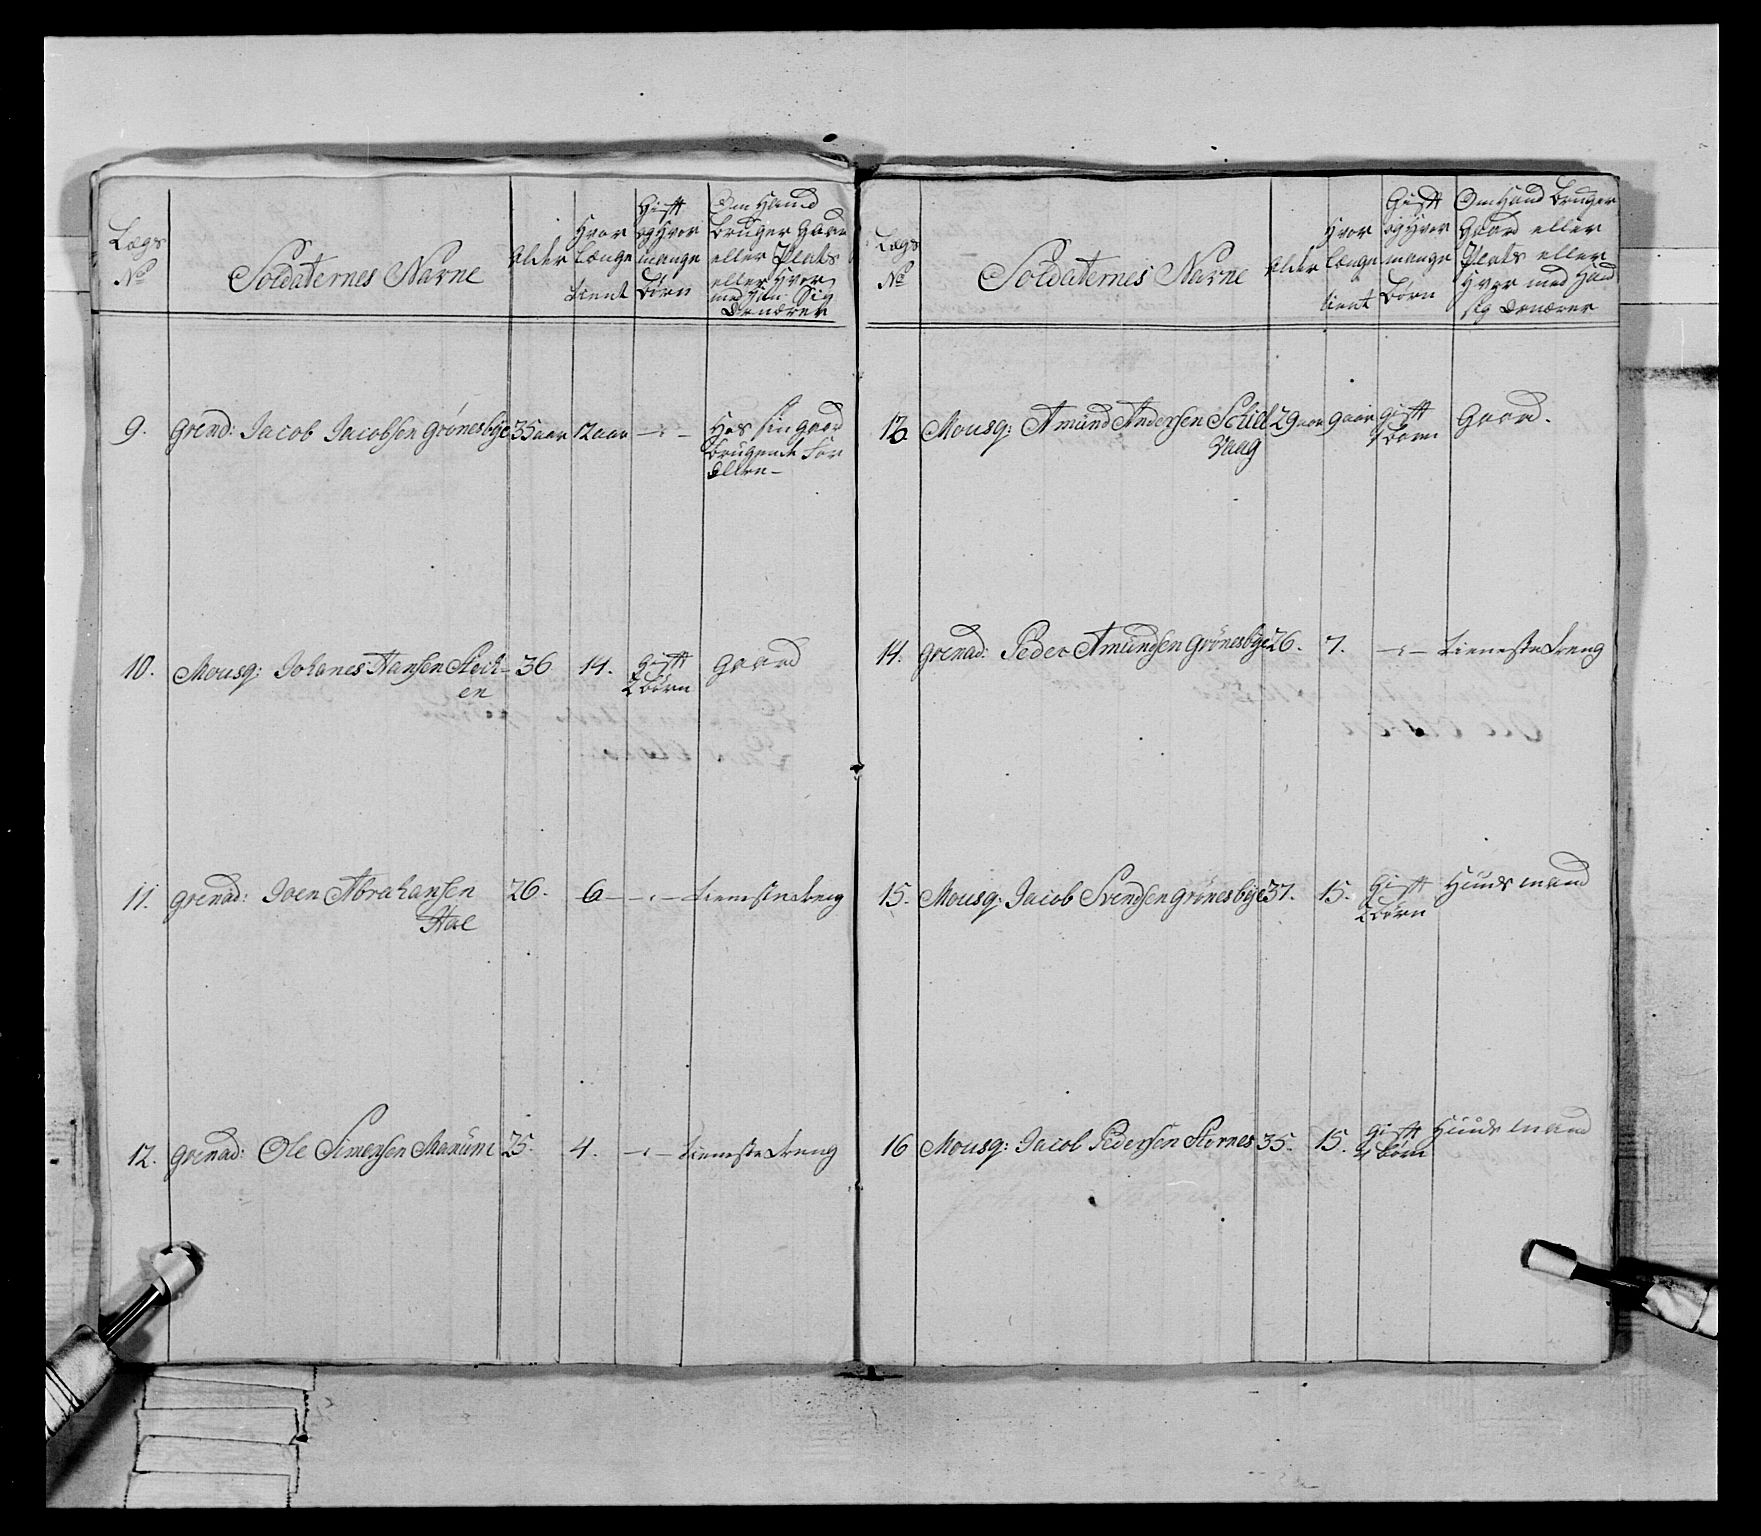 Lægs No
Soldaternes Navne
Alder
Hvor
længe
tient
Gift
og Hvor
mange
Børn
Om Hand
Bruger Gaard
eller Plads
eller Hvor
med Han Sig
Ernærer
9. Grend: Jacob Jacobsen Grønesbye 35 aar 12 aar - Hos sin gaard
brugende For
Eldre -
10. Mousq: Johanes Hansen Steck- 36 14. Gift Gaard
en 2 børn
11. Grenad: Joen Abrahansen 26. 6 - Tieneste dreng
Aae
12. Grenad: Ole Simensen Manum 25. 4. - Tieneste dreng
Lægs No
Soldaternes Navne
Alder
Hvor
længe
tient
Gift
og Hvor
mange
Børn
Om Hand Bruger
Gaard eller
Plads eller
Hvor med Hand
sig Ernærer
13 Mousq: Amund Andersen Schiel 29 aar 9 aar Gift Gaard.
Vaag 1 børn
14. Grenad: Peder Amundsen Grønesbye 26. 7. - Tieneste dreng
15. Mousq: Jacob Svendsen Grønesbye 37. 15. Gift Huusmand
2 børn
16 Mousq: Jacob Pedersen Stornes 35. 15. Gift Huusmand
4 børn